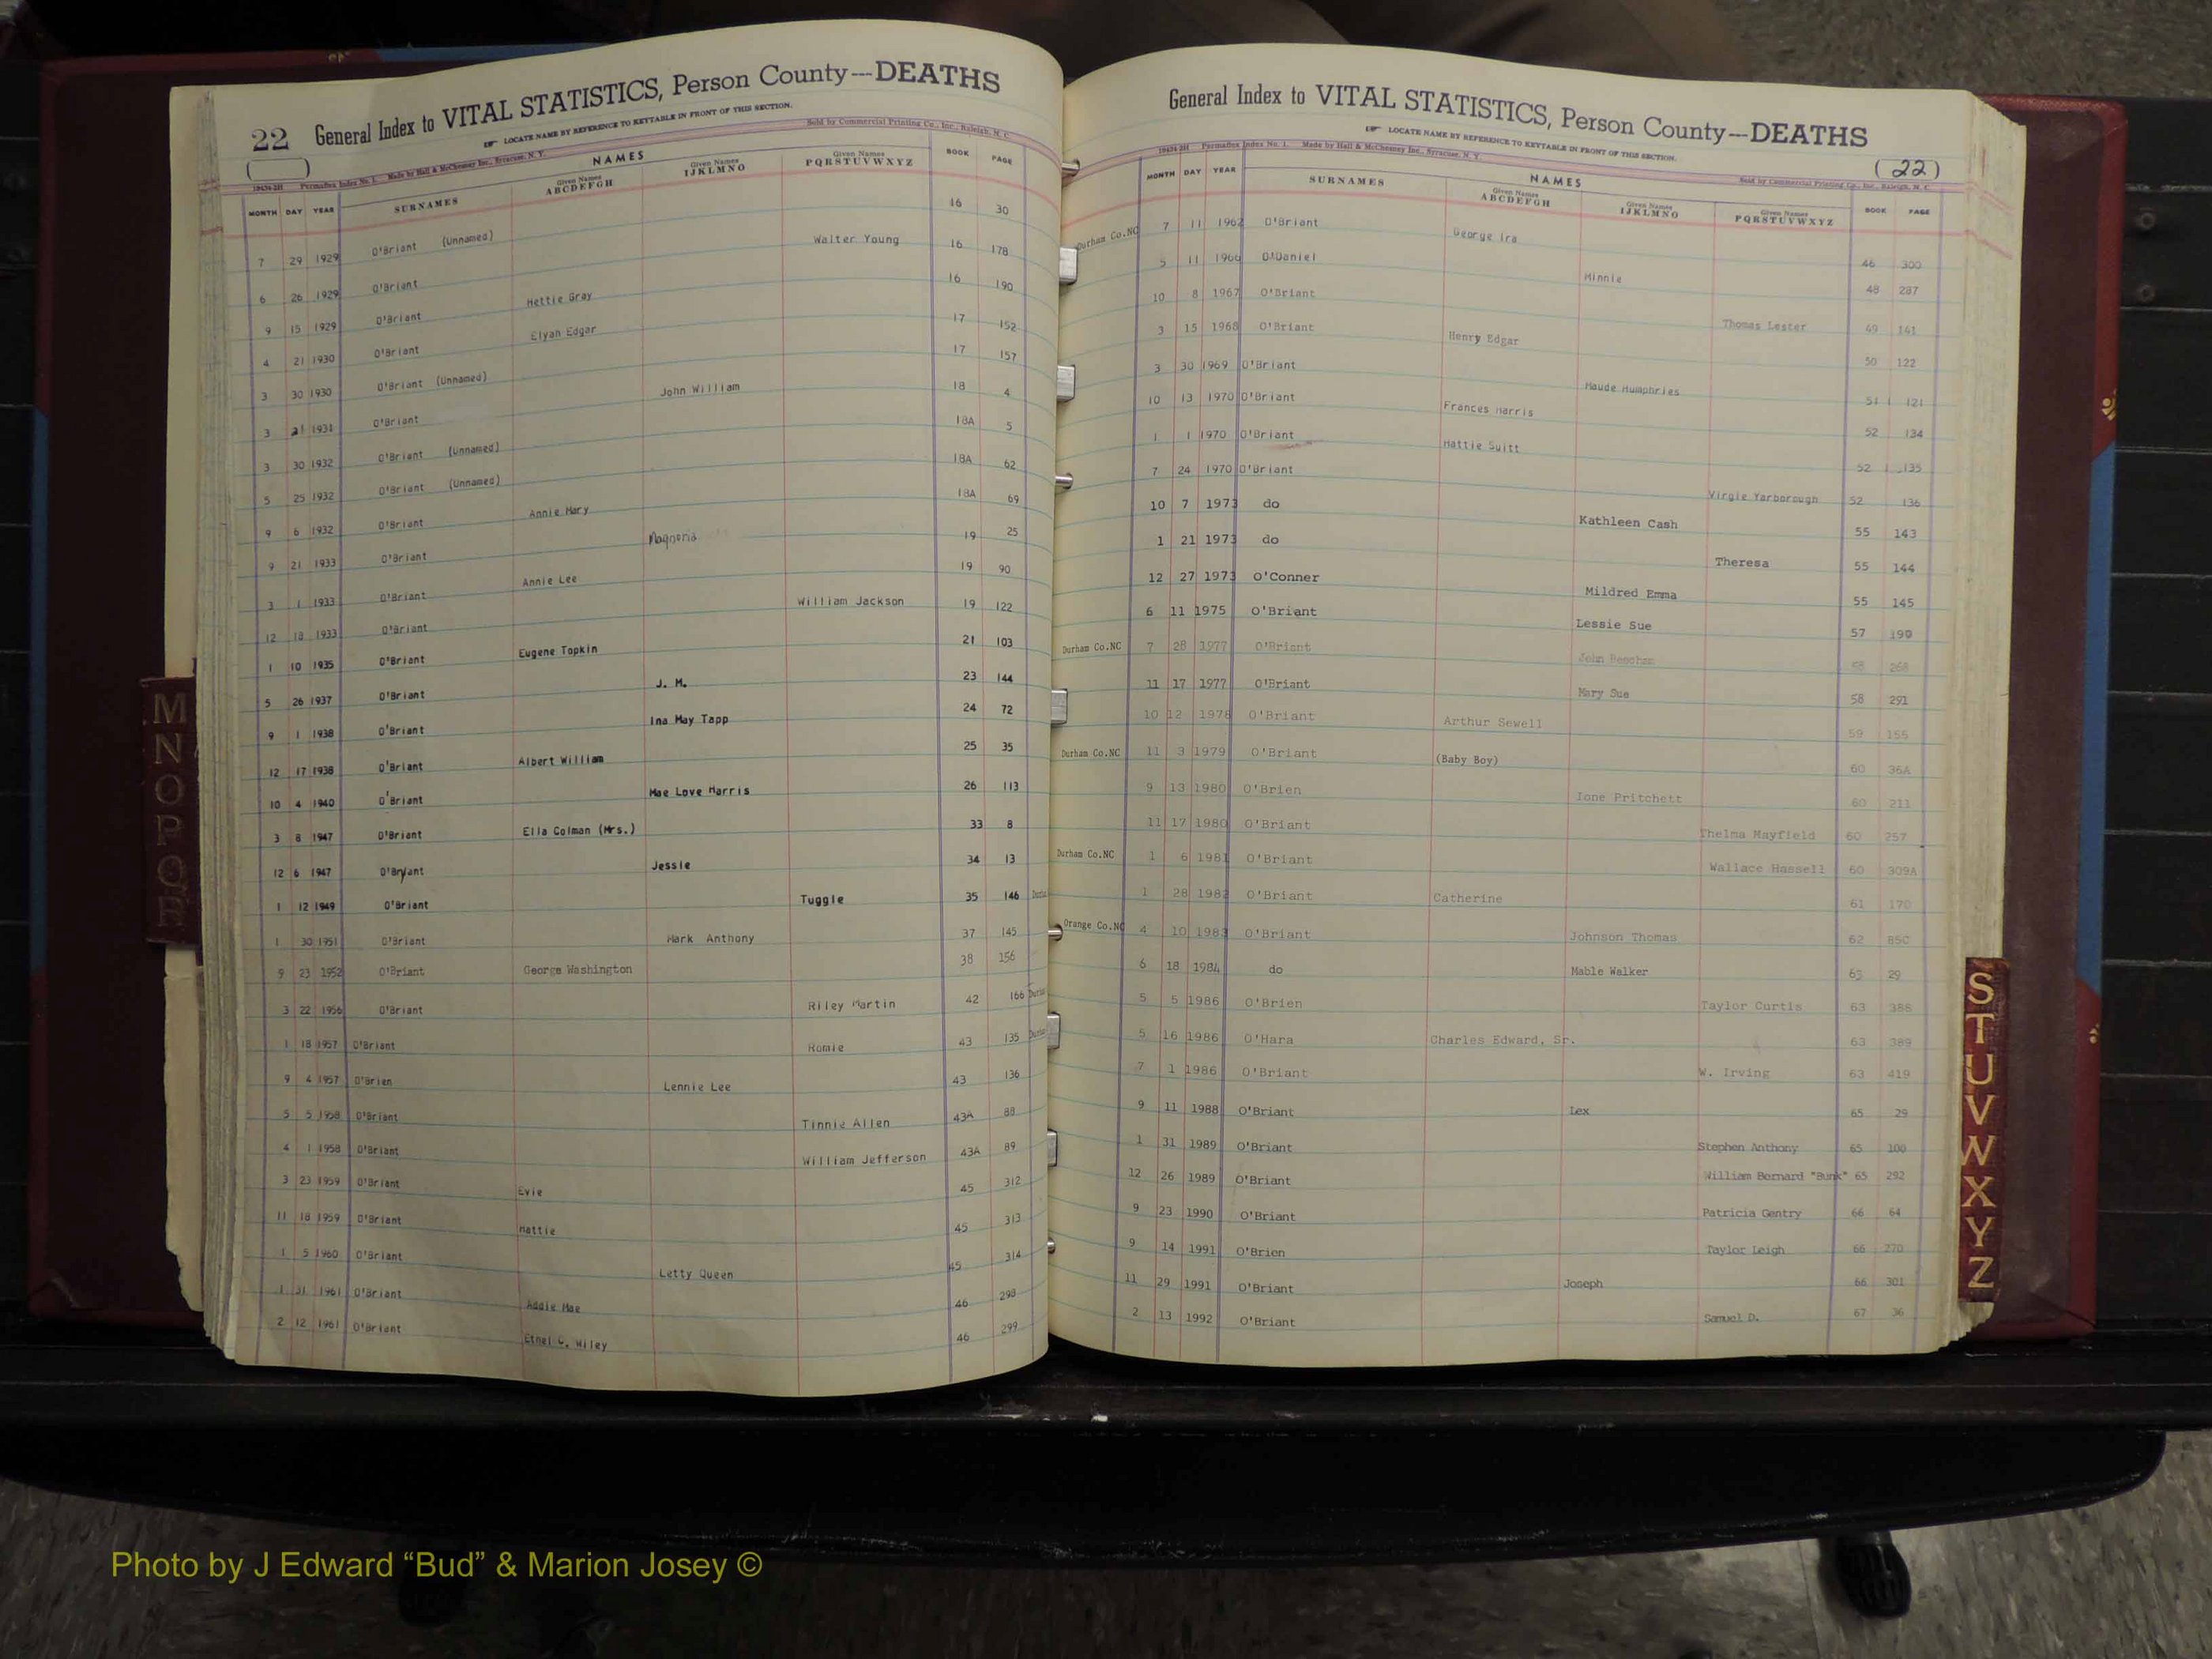 22 General Index to VITAL STATISTICS, Person County---DEATHS
LOCATE NAME BY REFERENCE TO KEYTABLE IN FRONT OF THIS SECTION.
Permaflex Index No. 1. Made by Hall & McChesney Inc., Syracuse, N. Y. Sold by Commercial Printing Co., Inc., Raleigh, N. C.
NAMES
MONTH DAY YEAR SURNAMES Given Names ABCDEFGH Given Names IJKLMNO Given Names PQRSTUVWXYZ BOOK PAGE
7 29 1929 O'Briant (Unnamed) 16 30
6 26 1929 O'Briant Walter Young 16 178
9 15 1929 O'Briant Hettie Gray 16 190
4 21 1930 O'Briant Elyan Edgar 17 152
3 30 1930 O'Briant (Unnamed) 17 157
3 21 1931 O'Briant John William 18 4
3 30 1932 O'Briant (Unnamed) 18A 5
5 25 1932 O'Briant (Unnamed) 18A 62
9 6 1932 O'Briant Annie Mary 18A 69
9 21 1933 O'Briant Magnoria 19 25
3 1 1933 O'Briant Annie Lee 19 90
12 18 1933 O'Briant William Jackson 19 122
1 10 1935 O'Briant Eugene Topkin 21 103
5 26 1937 O'Briant J. M. 23 144
9 1 1938 O'Briant Ina May Tapp 24 72
12 17 1938 O'Briant Albert William 25 35
10 4 1940 O'Briant Mae Love Harris 26 113
3 8 1947 O'Briant Ella Colman (Mrs.) 33 8
12 6 1947 O'Bryant Jessie 34 13
1 12 1949 O'Briant Tuggle 35 146
1 30 1951 O'Briant Mark Anthony 37 145
9 23 1952 O'Briant George Washington 38 156
3 22 1956 O'Briant Riley Martin 42 166
1 18 1957 O'Briant Romie 43 135
9 4 1957 O'Brien Lennie Lee 43 136
5 5 1958 O'Briant Tinnie Allen 43A 88
4 1 1958 O'Briant William Jefferson 43A 89
3 23 1959 O'Briant Evie 45 312
11 18 1959 O'Briant Hattie 45 313
1 5 1960 O'Briant Letty Queen 45 314
1 31 1961 O'Briant Addie Mae 46 298
2 12 1961 O'Briant Ethel C. Wiley 46 299
MNOPQR
General Index to VITAL STATISTICS, Person County---DEATHS
LOCATE NAME BY REFERENCE TO KEYTABLE IN FRONT OF THIS SECTION.
(22)
Permaflex Index No. 1. Made by Hall & McChesney Inc., Syracuse, N. Y. Sold by Commercial Printing Co., Inc., Raleigh, N. C.
NAMES
MONTH DAY YEAR SURNAMES Given Names ABCDEFGH Given Names IJKLMNO Given Names PQRSTUVWXYZ BOOK PAGE
Durham Co.NC 7 11 1962 O'Briant George Ira 46 300
5 11 1966 O'Daniel Minnie 48 287
10 8 1967 O'Briant Thomas Lester 49 141
3 15 1968 O'Briant Henry Edgar 50 122
3 30 1969 O'Briant Maude Humphries 51 121
10 13 1970 O'Briant Frances Harris 52 134
1 1 1970 O'Briant Hattie Suitt 52 135
7 24 1970 O'Briant Virgie Yarborough 52 136
10 7 1973 do Kathleen Cash 55 143
1 21 1973 do Theresa 55 144
12 27 1973 O'Conner Mildred Emma 55 145
6 11 1975 O'Briant Lessie Sue 57 199
Durham Co.NC 7 28 1977 O'Briant John Beecham 58 268
11 17 1977 O'Briant Mary Sue 58 291
10 12 1978 O'Briant Arthur Sewell 59 155
Durham Co.NC 11 3 1979 O'Briant (Baby Boy) 60 36A
9 13 1980 O'Brien Ione Pritchett 60 211
11 17 1980 O'Briant Thelma Mayfield 60 257
Durham Co.NC 1 6 1981 O'Briant Wallace Hassell 60 309A
1 28 1982 O'Briant Catherine 61 170
Orange Co.NC 4 10 1983 O'Briant Johnson Thomas 62 85C
6 18 1984 do Mable Walker 63 29
5 5 1986 O'Brien Taylor Curtis 63 386
5 16 1986 O'Hara Charles Edward, Sr. 63 389
7 1 1986 O'Briant W. Irving 63 419
9 11 1988 O'Briant Lex 65 29
1 31 1989 O'Briant Stephen Anthony 65 100
12 26 1989 O'Briant William Bernard "Bunk" 65 292
9 23 1990 O'Briant Patricia Gentry 66 64
9 14 1991 O'Brien Taylor Leigh 66 270
11 29 1991 O'Briant Joseph 66 301
2 13 1992 O'Briant Samuel D. 67 36
STUVWXYZ
Photo by J Edward “Bud” & Marion Josey ©